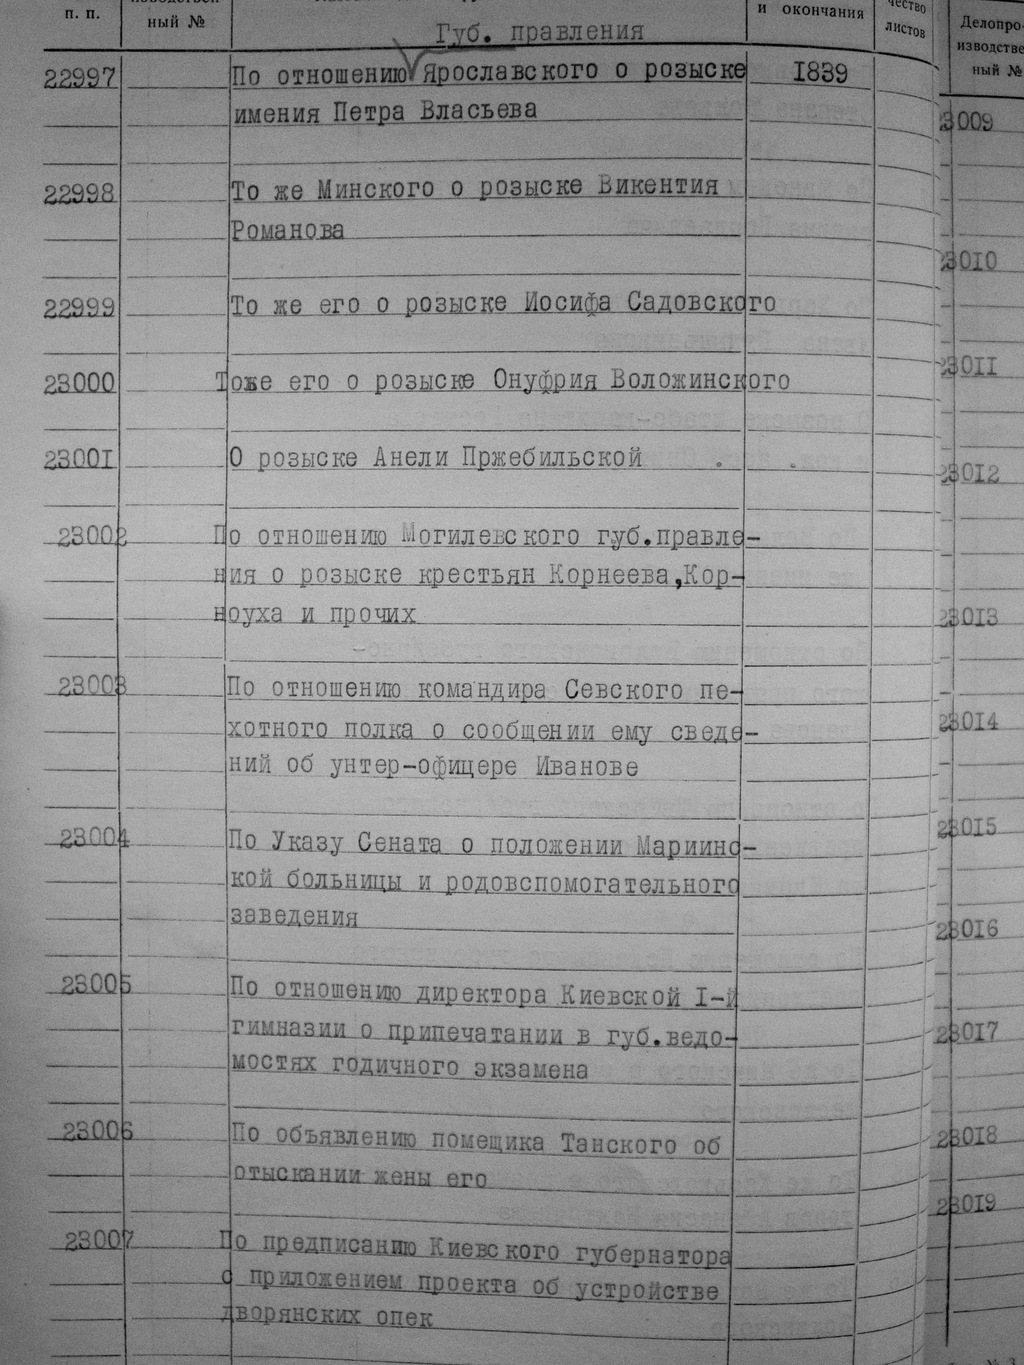 п. п.
ный №
и окончания
чество
листов
Делопро-
изводстве
ный №
Губ. правления
22997 По отношению Ярославского о розыске 1839
имения Петра Власьева
22998 То же Минского о розыске Викентия
Романова
22999 То же его о розыске Иосифа Садовского
23000 Тоже его о розыске Онуфрия Воложинского
23001 О розыске Анели Пржебильской
23002 По отношению Могилевского губ.правле-
ния о розыске крестьян Корнеева,Кор-
ноуха и прочих
23003 По отношению командира Севского пе-
хотного полка о сообщении ему сведе-
ний об унтер-офицере Иванове
23004 По Указу Сената о положении Мариинс-
кой больницы и родовспомогательного
заведения
23005 По отношению директора Киевской I-й
гимназии о припечатании в губ.ведо-
мостях годичного экзамена
23006 По объявлению помещика Танского об
отыскании жены его
23007 По предписанию Киевского губернатора
с приложением проекта об устройстве
дворянских опек
23009
23010
23011
23012
23013
23014
23015
23016
23017
23018
23019